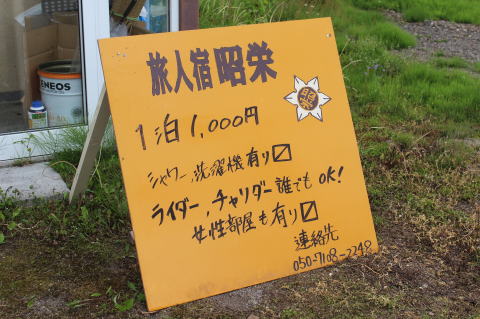 ENEOS
旅人宿 昭栄
1泊 1,000円
シャワー、洗濯機有り☑
ライダー、チャリダー誰でもOK!
女性部屋も有り☑
連絡先
050-7108-2248